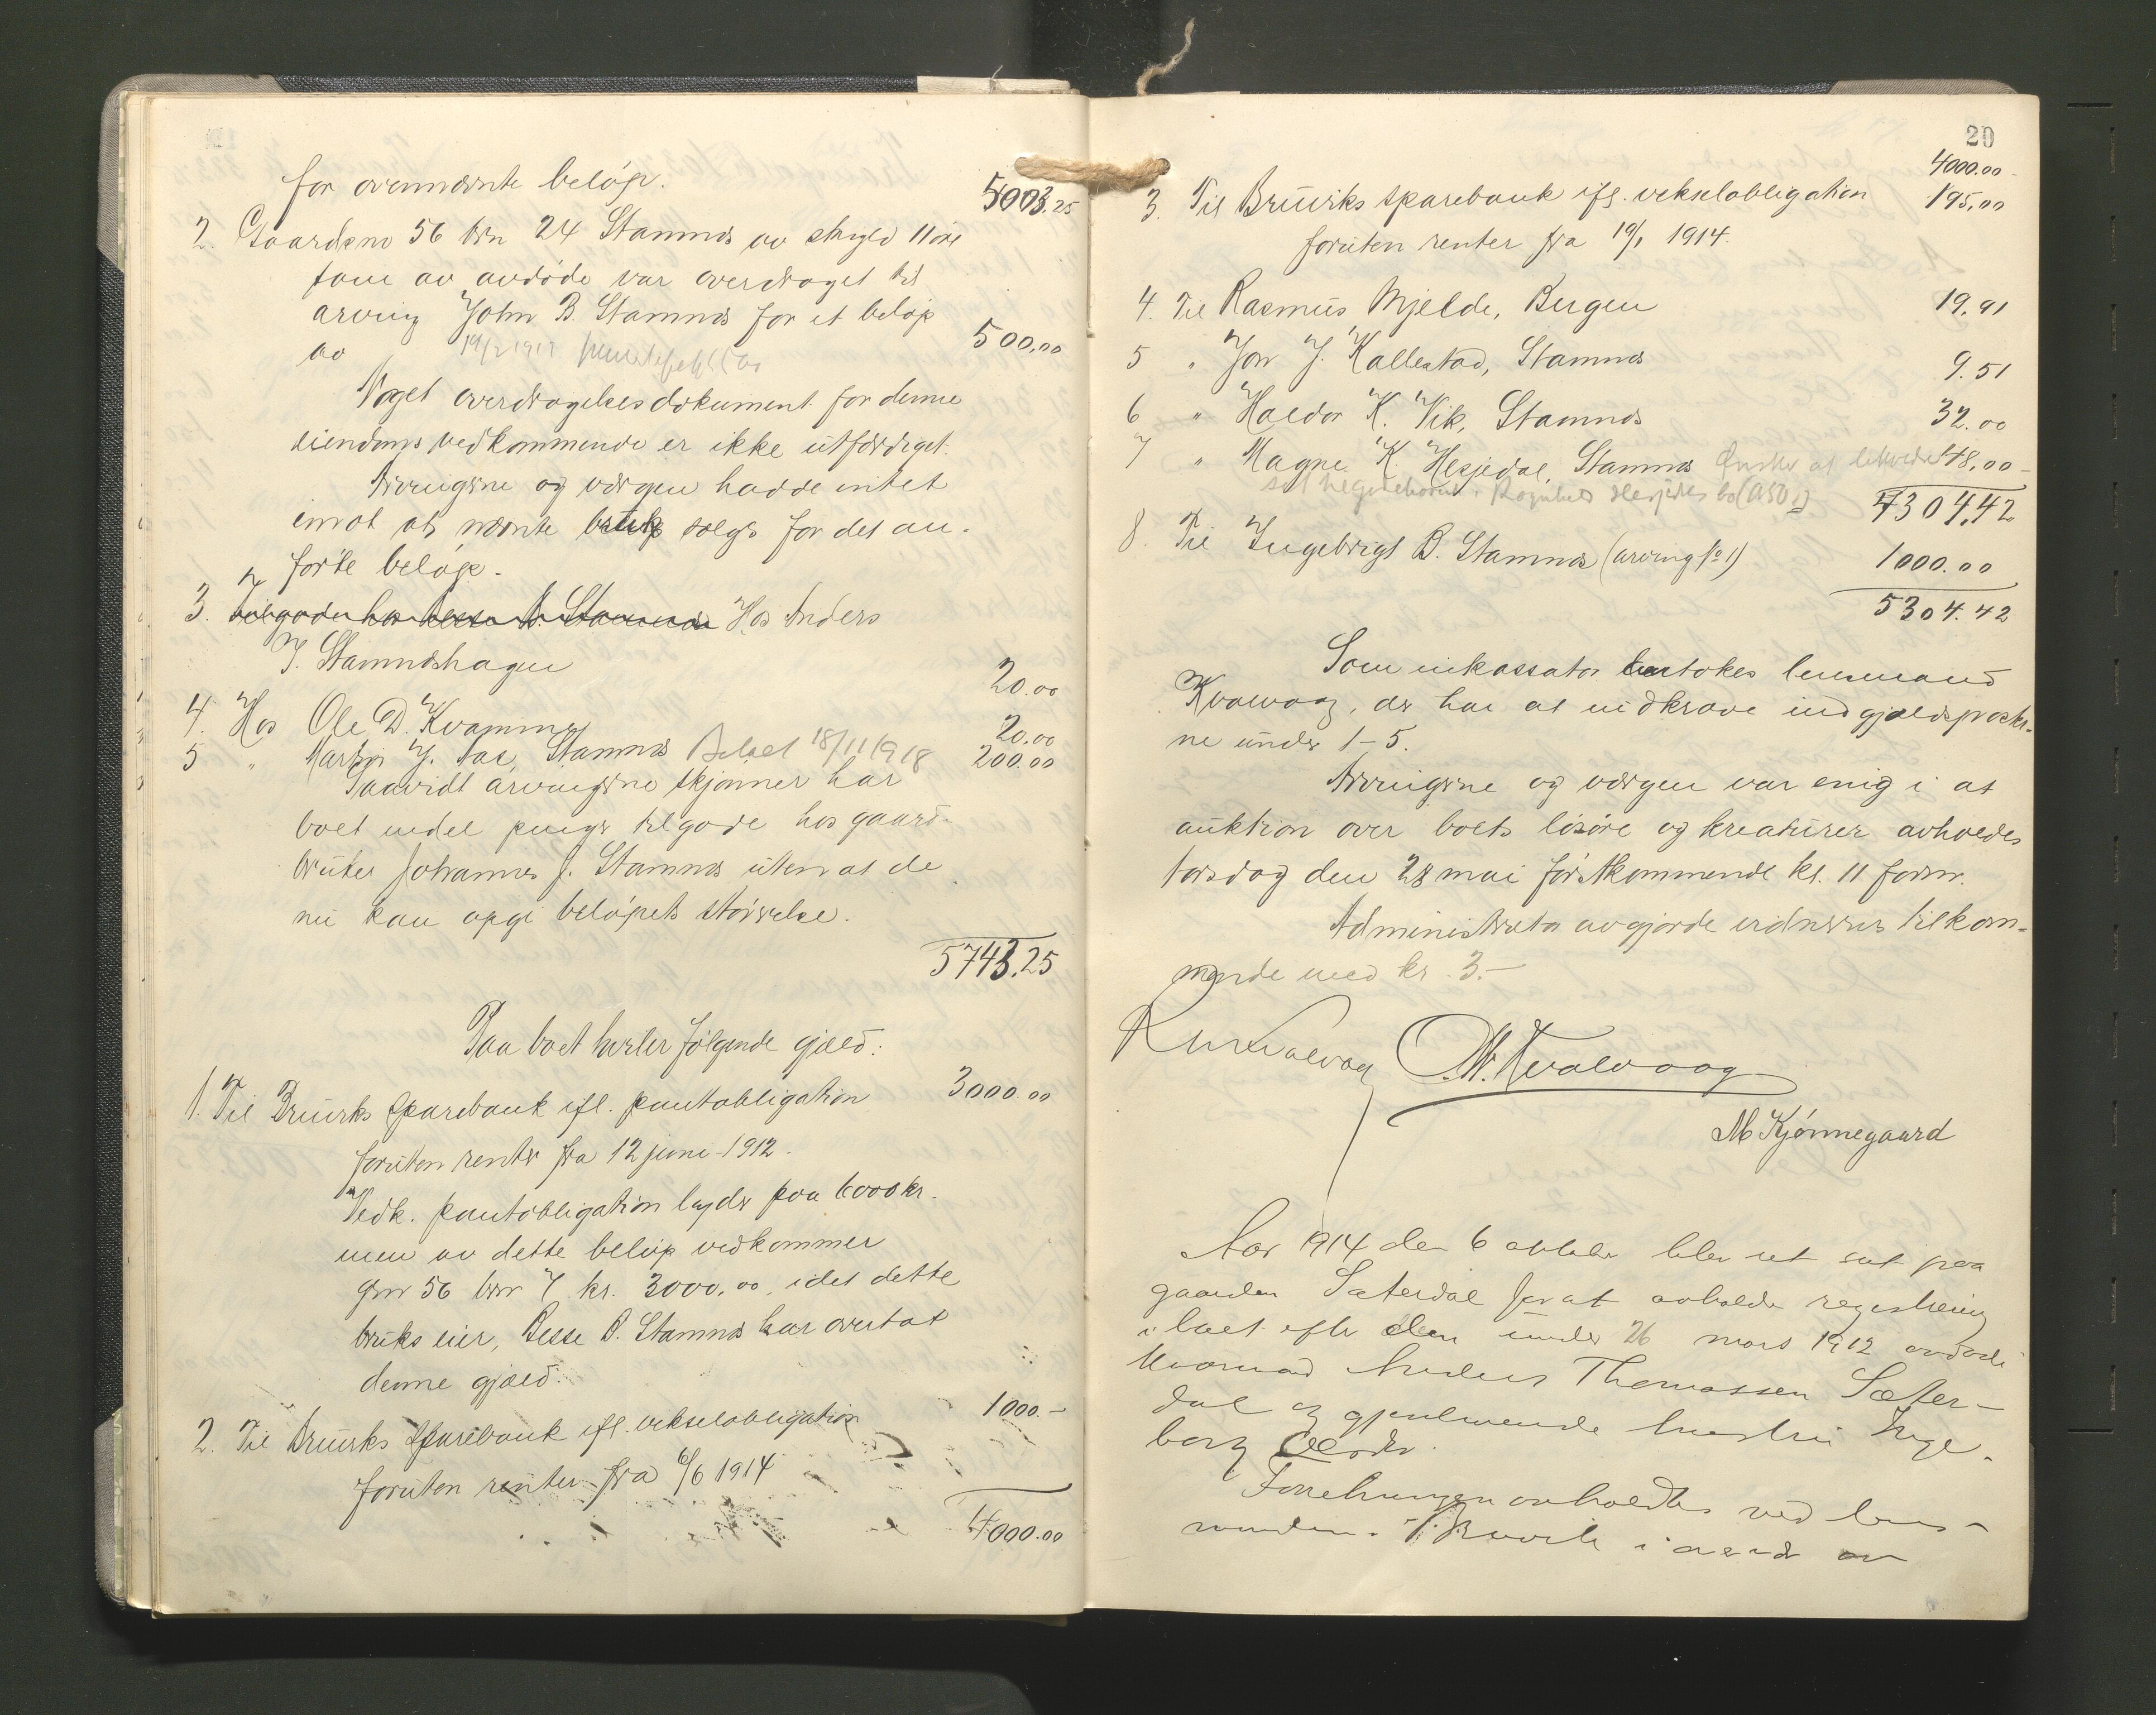 for ovennævnte beløp. 5003.25
2. Gaardsno 56 brn 24 Stamnes av skyld 11 øre
som av avdøde var overdraget til
arving John B. Stamnes for et beløp
av 500,00
Noget overdragelsesdokument for denne
eiendoms vedkommende er ikke utfærdiget.
Arvingerne og værgen hadde intet
imot at nævnte bruk sælges for det an-
førte beløp.
3. Tilgode hos Besse B. Stamnes Hos Anders
J. Stamneshagen 20.00
4. Hos Ole D. Kvamme 20.00
5 " J. Aas, Stamnes Betalt 18/11 1918 200.00
Saavidt arvingerne skjønner har
boet endel penger tilgode hos gaard-
bruker Johannes J. Stamnes uten at de
nu kan opgi beløpets størrelse.
5743.25
Paa boet hviler følgende gjæld:
1. Til Bruviks Sparebank ifl. pantobligation 3000.00
foruten renter fra 12 juni 1912.
Vedk. pantobligation lyder paa 6000 kr.
men av dette beløp vedkommer
gnr 56 brn 7 kr. 3000,00, idet dette
bruks eier, Besse B. Stamnes har overtat
denne gjæld.
2. Til Bruviks Sparebank ifl. vekselobligation 1000.-
foruten renter fra 6/6 1914
4000.00
20
4000.00
3. Til Bruviks Sparebank ifl. vekselobligation 195,00
foruten renter fra 19/1 1914.
4. Til Rasmus Mjelde, Bergen 19.91
5 " Jon J. Kallestad, Stamnes 9.51
6 " Haldor K. Vik, Stamnes 32.00
7 " Magne K. Hesjedal, Stamnes 48,00
4304,42
8. Til Ingebrigt B. Stamnes (arving No 1) 1000.00
5304.42
Som inkassator lensmand
Kvalvaag, der har at indkræve indgjældsposter-
ne under 1-5.
Arvingerne og værgen var enig i at
auktion over boets løsøre og kreaturer avholdes
torsdag den 28 mai førstkommende kl. 11 form.
Administrator avgjorde vidnernes tilkom-
mende med kr. 3.-
Kvalvaag
M. Kjønnegaard
Aar 1914 den 6 oktober blev ret sat paa
gaarden Sæterdal for at avholde registrering
i boet efter den under 26 mars 1912 avdøde
Anders Thomassen Sæter-
dal og gjenlevende hustru Inge-
borg
Forretningen avholdtes ved lens-
manden i Bruvik i nærvær av